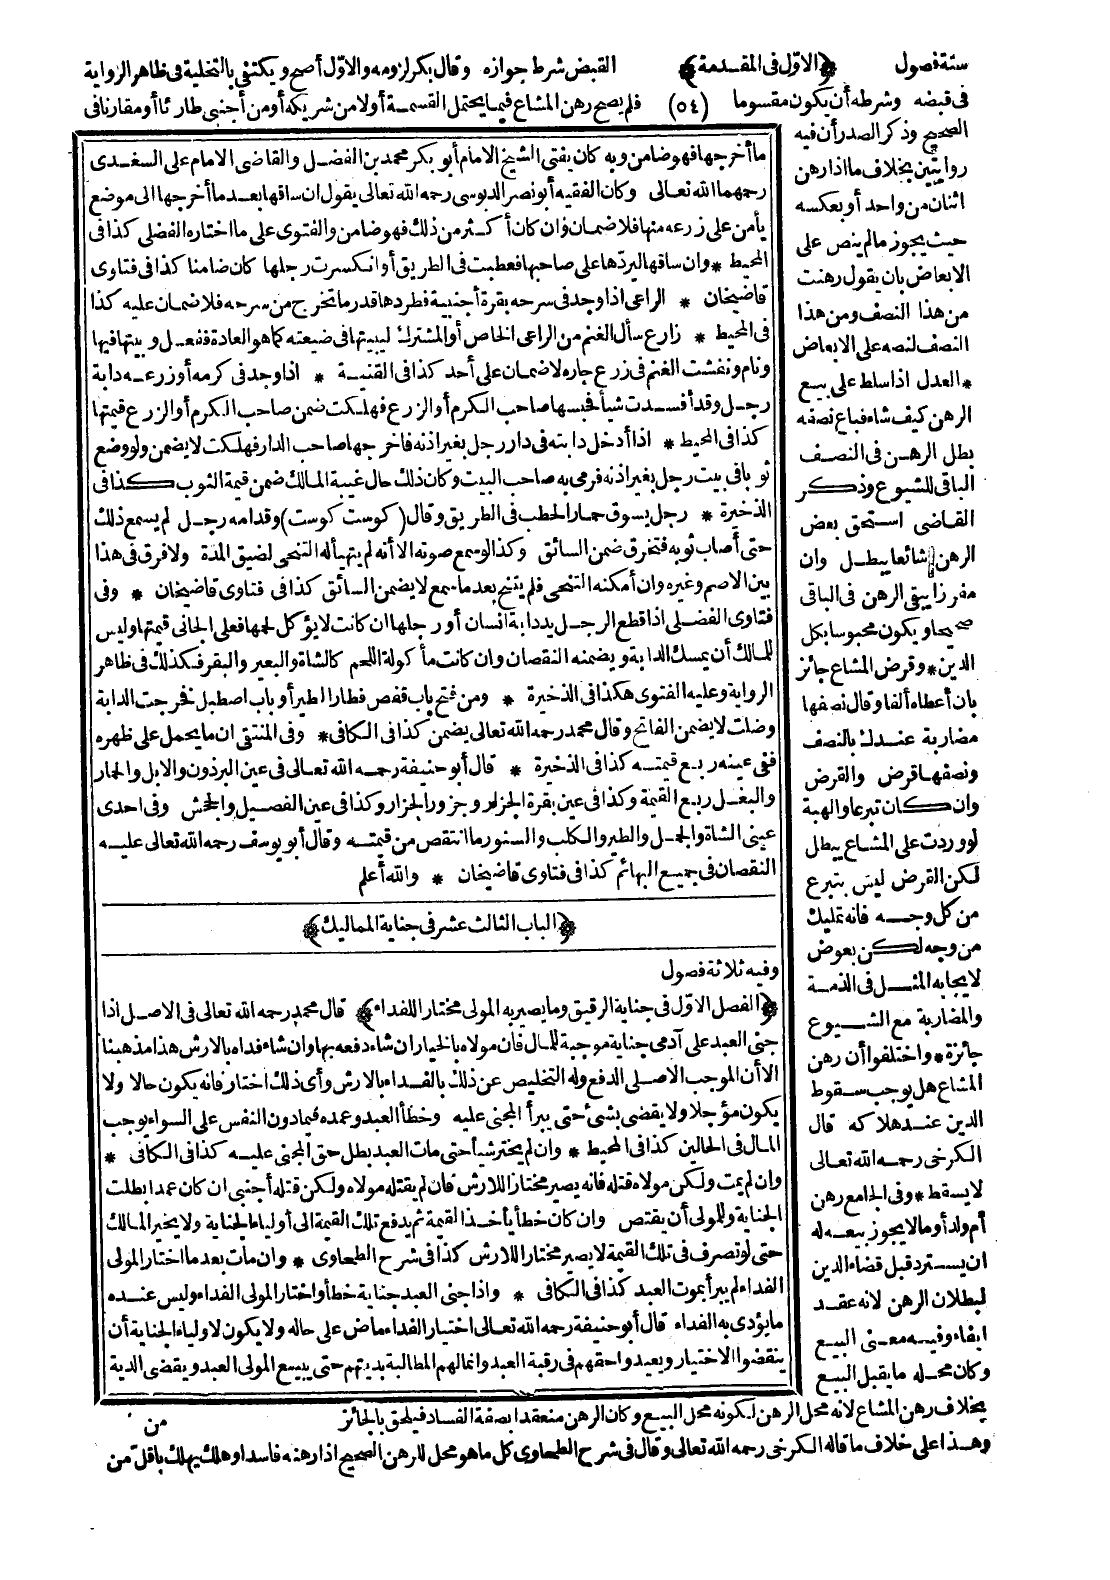 ستة فصول ﴿الاول فى المقدمة﴾ القبض شرط جوازه وقال بكر لزومه والاول أصح ويكتفى بالتخلية فى ظاهر الرواية
فى قبضه وشرطه أن يكون مقسوما (٥٤) فلم يصح رهن المشاع فيما يحتمل القسمة أولا من شريكه أو من أجنبى طارئا أو مقارنا فى
الصحيح وذكر الصدر أن فيه
روايتين بخلاف ما اذا رهن
اثنان من واحد أو بعكسه
حيث يجوز مالم ينص على
الابعاض بان يقول رهنت
من هذا النصف ومن هذا
النصف لنصه على الابعاض
*العدل اذا سلط على بيع
الرهن كيف شاء فباع نصفه
بطل الرهن فى النصف
الباقى للشيوع وذكر
القاضى استحق بعض
الرهن شائعا يبطل وان
مفرزا يبقى الرهن فى الباقى
صحيحا ويكون محبوسا بكل
الدين *وقرض المشاع جائز
بان أعطاه ألفا وقال نصفها
مضاربة عندك بالنصف
ونصفها قرض والقرض
وان كان تبرعا والهبة
لو وردت على المشاع يبطل
لكن القرض ليس بتبرع
من كل وجه فانه تمليك
من وجه لكن بعوض
لايجابه المثل فى الذمة
والمضاربة مع الشيوع
جائزة *واختلفوا أن رهن
المشاع هل يوجب سقوط
الدين عند هلاكه قال
الكرخى رحمه الله تعالى
لا يسقط *وفى الجامع رهن
أم ولد أو مالا يجوز بيعه له
ان يسترد قبل قضاء الدين
لبطلان الرهن لانه عقد
ايفاء وفيه معنى البيع
وكان محله ما يقبل البيع
بخلاف رهن المشاع لانه محل الرهن لكونه محل البيع وكان الرهن منعقدا بصفة الفساد فيلحق بالجائز
وهذا على خلاف ما قاله الكرخى رحمه الله تعالى وقال فى شرح الطحاوى كل ما هو محل للرهن الصحيح اذا رهنه فاسدا وهلك يهلك باقل من
ما أخرجها فهو ضامن وبه كان يفتى الشيخ الامام أبو بكر محمد بن الفضل والقاضى الامام على السغدى
رحمهما الله تعالى وكان الفقيه أبو نصر الدبوسى رحمه الله تعالى يقول ان ساقها بعد ما أخرجها الى موضع
يأمن على زرعه منها فلا ضمان وان كان أكثر من ذلك فهو ضامن والفتوى على ما اختاره الفضلى كذا فى
المحيط *وان ساقها ليردها على صاحبها فعطبت فى الطريق أو انكسرت رجلها كان ضامنا كذا فى فتاوى
قاضيخان * الراعى اذا وجد فى سرحه بقرة أجنبية فطردها قدر ما تخرج من سرحه فلا ضمان عليه كذا
فى المحيط * زارع سأل الغنم من الراعى الخاص أو المشترك ليبيتها فى ضيعته كما هو العادة ففعل وبيتها فيها
ونام ونفشت الغنم فى زرع جاره لا ضمان على أحد كذا فى القنية * اذا وجد فى كرمه أو زرعه دابة
رجل وقد أفسدت شيأ فحبسها صاحب الكرم أو الزرع فهلكت ضمن صاحب الكرم أو الزرع قيمتها
كذا فى المحيط * اذا أدخل دابته فى دار رجل بغير اذنه فاخرجها صاحب الدار فهلكت لا يضمن ولو وضع
ثوبا فى بيت رجل بغير اذنه فرمى به صاحب البيت وكان ذلك حال غيبة المالك ضمن قيمة الثوب كذا فى
الذخيرة * رجل يسوق حمار الحطب فى الطريق وقال (كوست كوست) وقدامه رجل لم يسمع ذلك
حتى أصاب ثوبه فتخرق ضمن السائق وكذا لو سمع صوته الا أنه لم يتهيأ له التنحى لضيق المدة ولا فرق فى هذا
بين الاصم وغيره وان أمكنه التنحى فلم يتنح بعد ما سمع لا يضمن السائق كذا فى فتاوى قاضيخان * وفى
فتاوى الفضلى اذا قطع الرجل يد دابة انسان أو رجلها ان كانت لا يؤكل لحمها فعلى الجانى قيمتها وليس
للمالك أن يمسك الدابة ويضمنه النقصان وان كانت مأكولة اللحم كالشاة والبعير والبقر فكذلك فى ظاهر
الرواية وعليه الفتوى هكذا فى الذخيرة * ومن فتح باب قفص فطار الطير أو باب اصطبل فخرجت الدابة
وضلت لا يضمن الفاتح وقال محمد رحمه الله تعالى يضمن كذا فى الكافى * وفى المنتقى ان ما يحمل على ظهره
ففى عينه ربع قيمته كذا فى الذخيرة * قال أبو حنيفة رحمه الله تعالى فى عين البرذون والابل والحمار
والبغل ربع القيمة وكذا فى عين بقرة الجزار وجزور الجزار وكذا فى عين الفصيل والجحش وفى احدى
عينى الشاة والحمل والطير والكلب والسنور ما انتقص من قيمته وقال أبو يوسف رحمه الله تعالى عليه
النقصان فى جميع البهائم كذا فى فتاوى قاضيخان * والله أعلم
﴿الباب الثالث عشر فى جناية المماليك﴾
وفيه ثلاثة فصول
﴿الفصل الاول فى جناية الرقيق وما يصير به المولى مختارا للفداء﴾ قال محمد رحمه الله تعالى فى الاصل اذا
جنى العبد على آدمى جناية موجبة للمال فان مولاه بالخيار ان شاء دفعه بها وان شاء فداه بالارش هذا مذهبنا
الا أن الموجب الاصلى الدفع وله التخليص عن ذلك بالفداء بالارش وأى ذلك اختار فانه يكون حالا ولا
يكون مؤجلا ولا يقضى بشئ حتى يبرأ المجنى عليه وخطأ العبد وعمده فيما دون النفس على السواء يوجب
المال فى الحالين كذا فى المحيط * وان لم يختر شيأ حتى مات العبد بطل حق المجنى عليه كذا فى الكافى *
وان لم يمت ولكن مولاه قتله فانه يصير مختارا للارش فان لم يقتله مولاه ولكن قتله أجنبى ان كان عمدا بطلت
الجناية وللمولى أن يقتص وان كان خطأ يأخذ القيمة ثم يدفع تلك القيمة الى أولياء الجناية ولا يخير المالك
حتى لو تصرف فى تلك القيمة لا يصير مختارا للارش كذا فى شرح الطحاوى * وان مات بعد ما اختار المولى
الفداء لم يبرأ بموت العبد كذا فى الكافى * واذا جنى العبد جناية خطأ واختار المولى الفداء وليس عنده
ما يؤدى به الفداء قال أبو حنيفة رحمه الله تعالى اختيار الفداء ماض على حاله ولا يكون لاولياء الجناية أن
ينقضوا الاختيار ويعيدوا حقهم فى رقبة العبد وانما لهم المطالبة بديتهم حتى يبيع المولى العبد ويقضى الدية
من